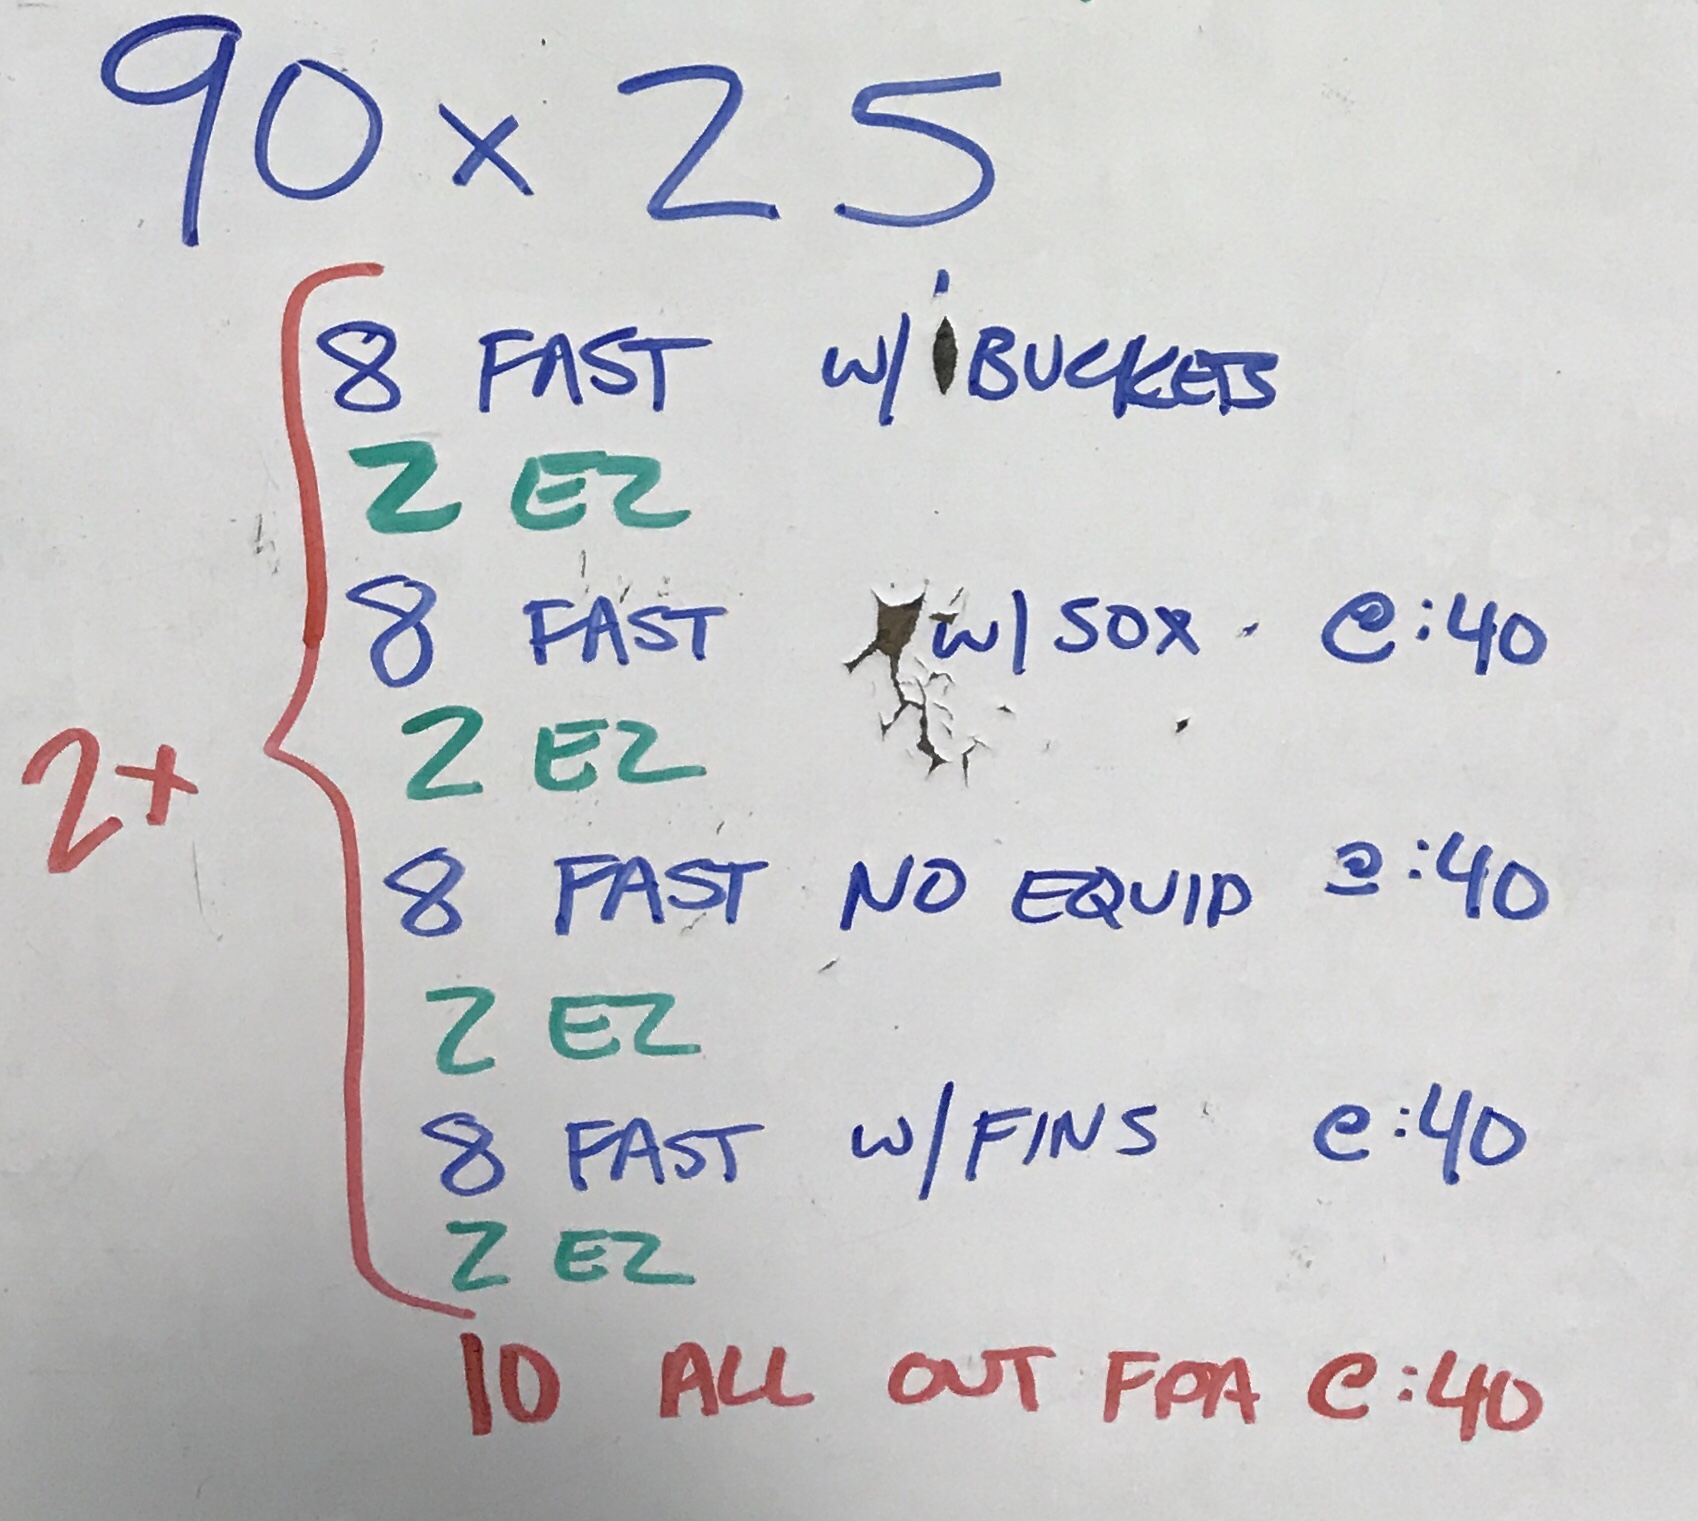 90 x 25
8 FAST w/ BUCKETS
2 EZ
8 FAST w/ SOX @:40
2 EZ
2x
8 FAST NO EQUIP @:40
2 EZ
8 FAST w/ FINS @:40
2 EZ
10 ALL OUT FPA @:40